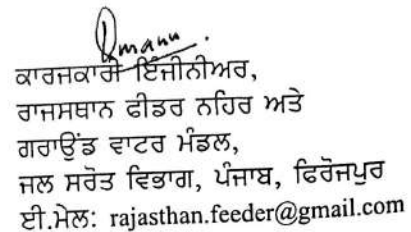 ਕਾਰਜਕਾਰੀ ਇੰਜੀਨੀਅਰ,
ਰਾਜਸਥਾਨ ਫੀਡਰ ਨਹਿਰ ਅਤੇ
ਗਰਾਉਂਡ ਵਾਟਰ ਮੰਡਲ,
ਜਲ ਸਰੋਤ ਵਿਭਾਗ, ਪੰਜਾਬ, ਫਿਰੋਜਪੁਰ
ਈ.ਮੇਲ: rajasthan.feeder@gmail.com